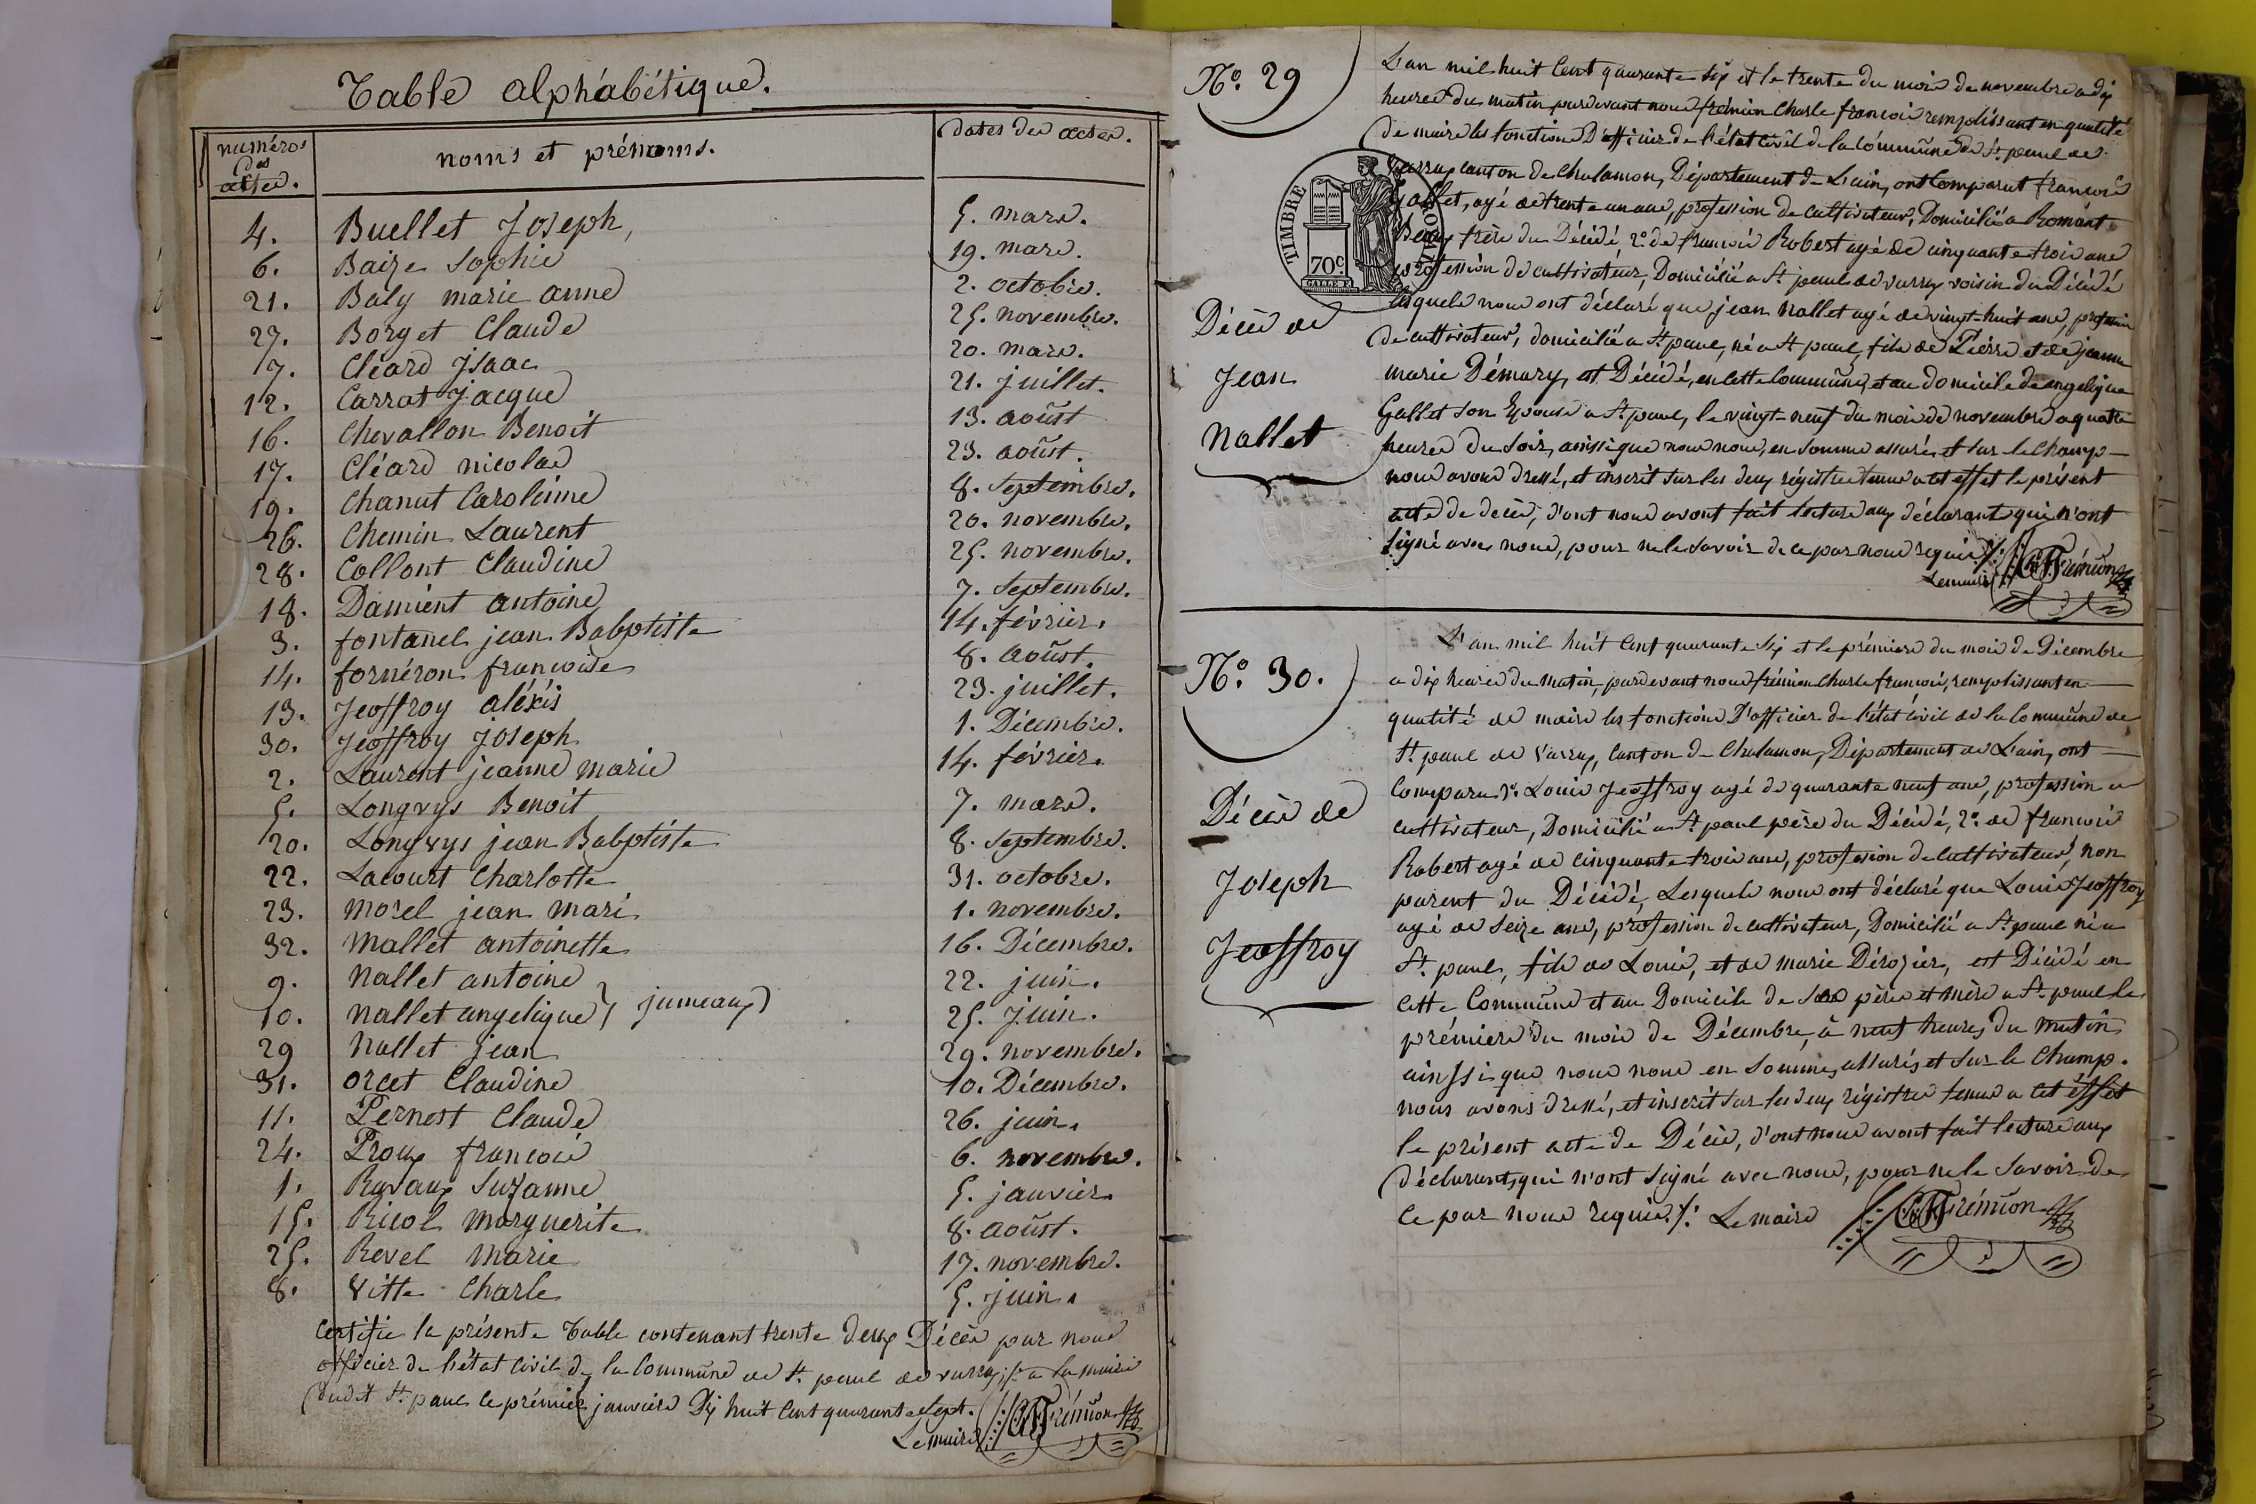 Table alphabétique.
numéros des actes.
noms et prénoms.
dates des actes.
4. Buellet Joseph, 5. mars.
6. Baize Sophie 19. mars.
21. Baly marie anne 2. octobre.
27. Borget Claude 25. novembre.
7. Cléard jsaac 20. mars.
12. Carrat jacque 21. juillet.
16. Chevallon Benoit 13. aoûst
17. Cléard nicolas 23. aoûst.
19. Chanut Carolinne 8. Septembre.
26. Chemin Laurent 20. novembre.
28. Collont Claudine 25. novembre.
18. Damient antoine 7. Septembre.
3. fontanel jean Babptiste 14. février.
14. fornéron francoise 8. aoûst.
13. Jeoffroy aléxis 23. juillet.
30. Jéoffroy Joseph 1. Décembre.
2. Laurent jeanne marie 14. février.
5. Longvys Benoit 7. mars.
20. Longvys jean Babptiste 8. Septembre.
22. Lacourt Charlotte 31. octobre.
23. morel jean mari 1. novembre.
32. mallet antoinette 16. Décembre.
9. nallet antoine 22. juin.
10. nallet angelique } jumeaux 25. juin.
29 nallet jean 29. novembre.
31. orcet Claudine 10. Décembre.
11. Pernost Claude 26. juin.
24. Proux francois 6. novembre.
1. Ravaux Suzanne 5. janvier.
15. Ricol marguerite 8. aoûst.
25. Revel marie 17. novembre.
8. Vitte Charle 5. juin.
Certifie la présente Table contenant trente deux Décès par nous
officier de l'état Civil de la Commune de St. paul de varax, a la mairie
dudit St. paul le prémier janvier Dix huit Cent quarante Sept.
Le maire CFFrémion
No. 29
Décès de
Jean
Nallet
TIMBRE ROYAL
70c.
L'an mil huit Cent quarante Six et le trente du mois de novembre a dix
heures du matin, pardevant nous frémion Charle francois remplissant en qualité
de maire les fonctions D'officier de l'état Civil de la Commune de St. paul de
varax canton de Chalamon, Département de L'ain, ont Comparut francois
gallet, agé de trente un ans, profession de Cultivateur, Domicilié a Romant
Beau frère du Décédé, 2o. de francois Robert agé de cinquante trois ans
profession de cultivateur, Domicilié a St. paul de varax voisin du Décédé
lesquels nous ont déclaré que jean nallet agé de vingt-huit ans, profession
de cultivateur, domicilié a St. paul, né a St. paul, fils de Pierre et de jeanne
marie Démary, est Décédé, en cette commune, et au domicile de angelique
Gallet son Epouse a St. paul, le vingt-neuf du mois de novembre a quatre
heures du Soir, ainssi que nous nous en somme assurés et sur le Champ
nous avons dressé, et inscrit sur les deux régistres tenus a cet effet le présent
acte de décès, d'ont nous avont fait lecture aux déclarants qui n'ont
signé avec nous, pour ne le savoir de ce par nous requis
Le maire CFFrémion
No. 30.
Décès de
Joseph
Jeoffroy
L'an mil huit Cent quarante Six et le prémiere du mois de Décembre
a dix heures du matin, pardevant nous frémion Charle francois, remplissant en
qualité de maire les fonctions D'officier de l'état Civil de la Commune de
St. paul de Varax, Canton de Chalamon, Département de L'ain, ont
Comparu 1o. Louis Jeoffroy agé de quarante neuf ans, profession de
cultivateur, Domicilié a St. paul père du Décédé, 2o. de francois
Robert agé de cinquante trois ans, profession de Cultivateur, non
parent du Décédé, Lesquels nous ont déclaré que Louis Jeoffroy
agé de Seize ans, profession de cultivateur, Domicilié a St. paul né a
St. paul, fils de Louis, et de marie Dérozier, est Décédé en
cette Commune et au Domicile de Ses père et mère a St. paul le
prémiere du mois de Décembre, à neuf heures du matin
ainssi que nous nous en Somme assurés, et Sur le Champ.
nous avons dressé, et inscrit sur les deux régistres tenus a cet éffet
le présent acte de Décès, d'ont nous avont fait lecture aux
déclarants, qui n'ont signé avec nous, pour ne le Savoir de
ce par nous requis. Le maire CFFrémion